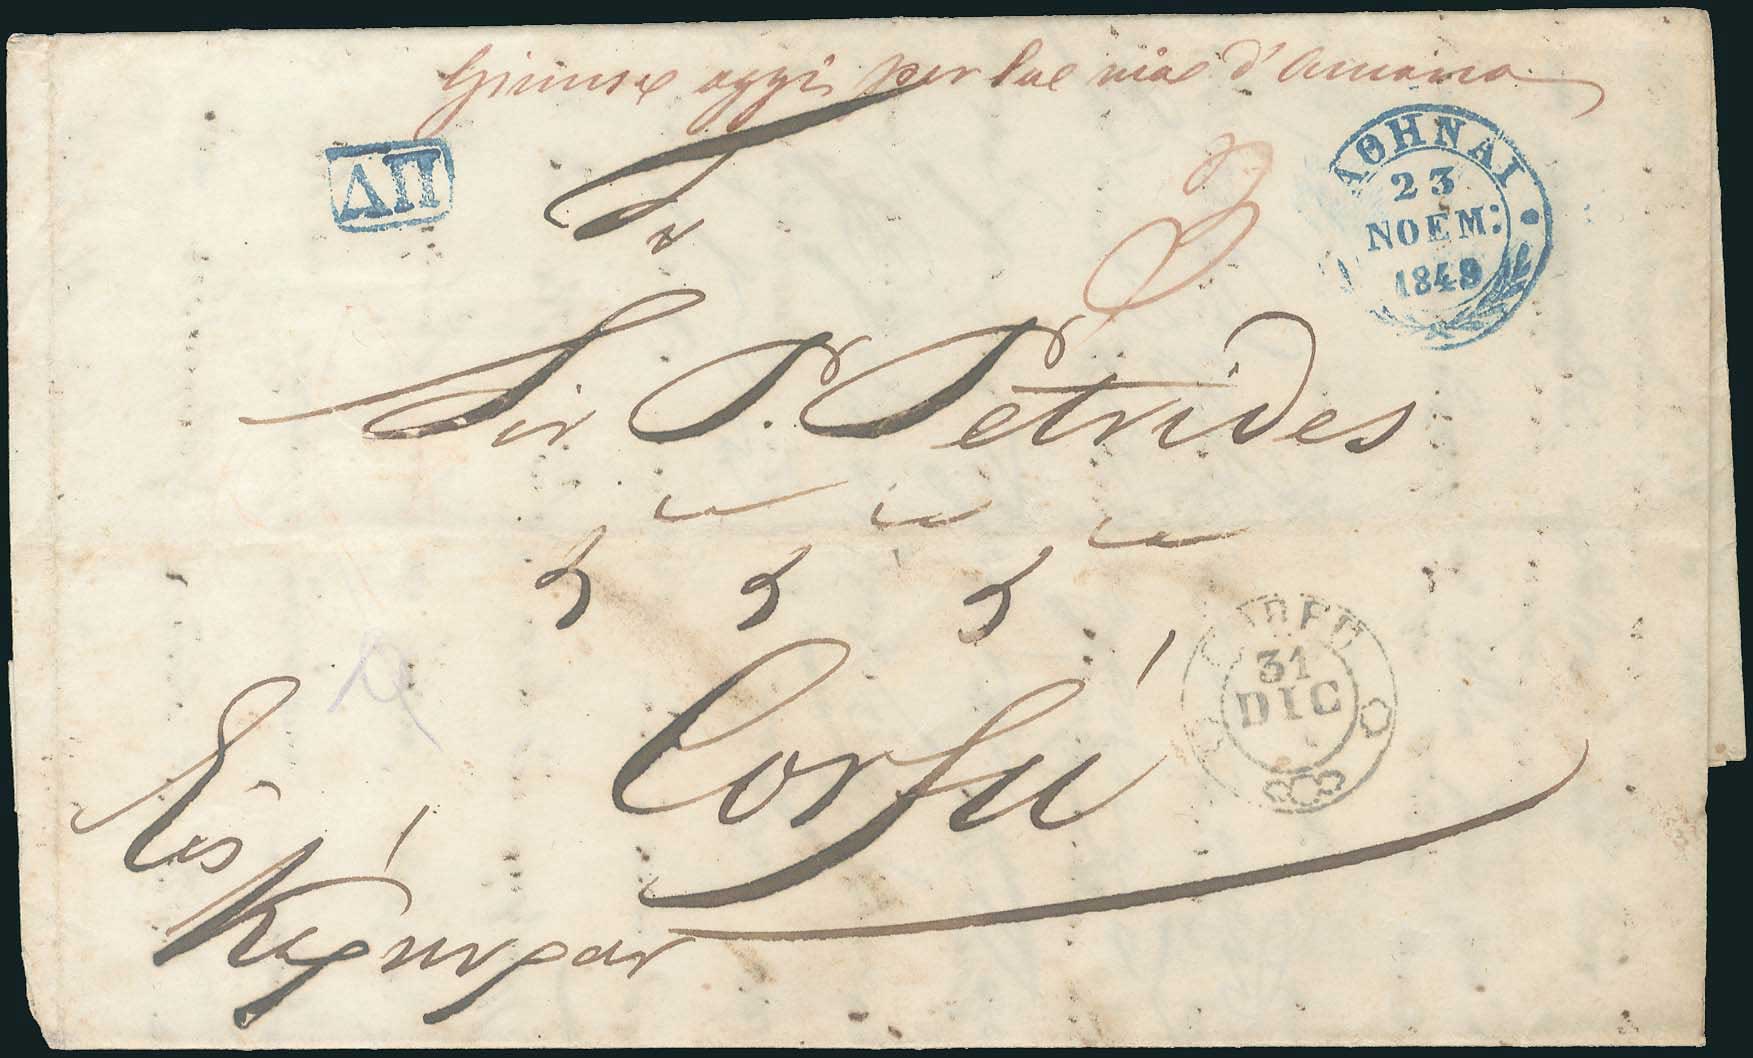 Giunse oggi per la via d'Ancona
ΔΠ
ΑΘΗΝΑΙ
23
ΝΟΕΜ:
1849
To
Sir P. Petrides
Corfú
CORFU
31
DIC
Εἰς
Κέρκυραν